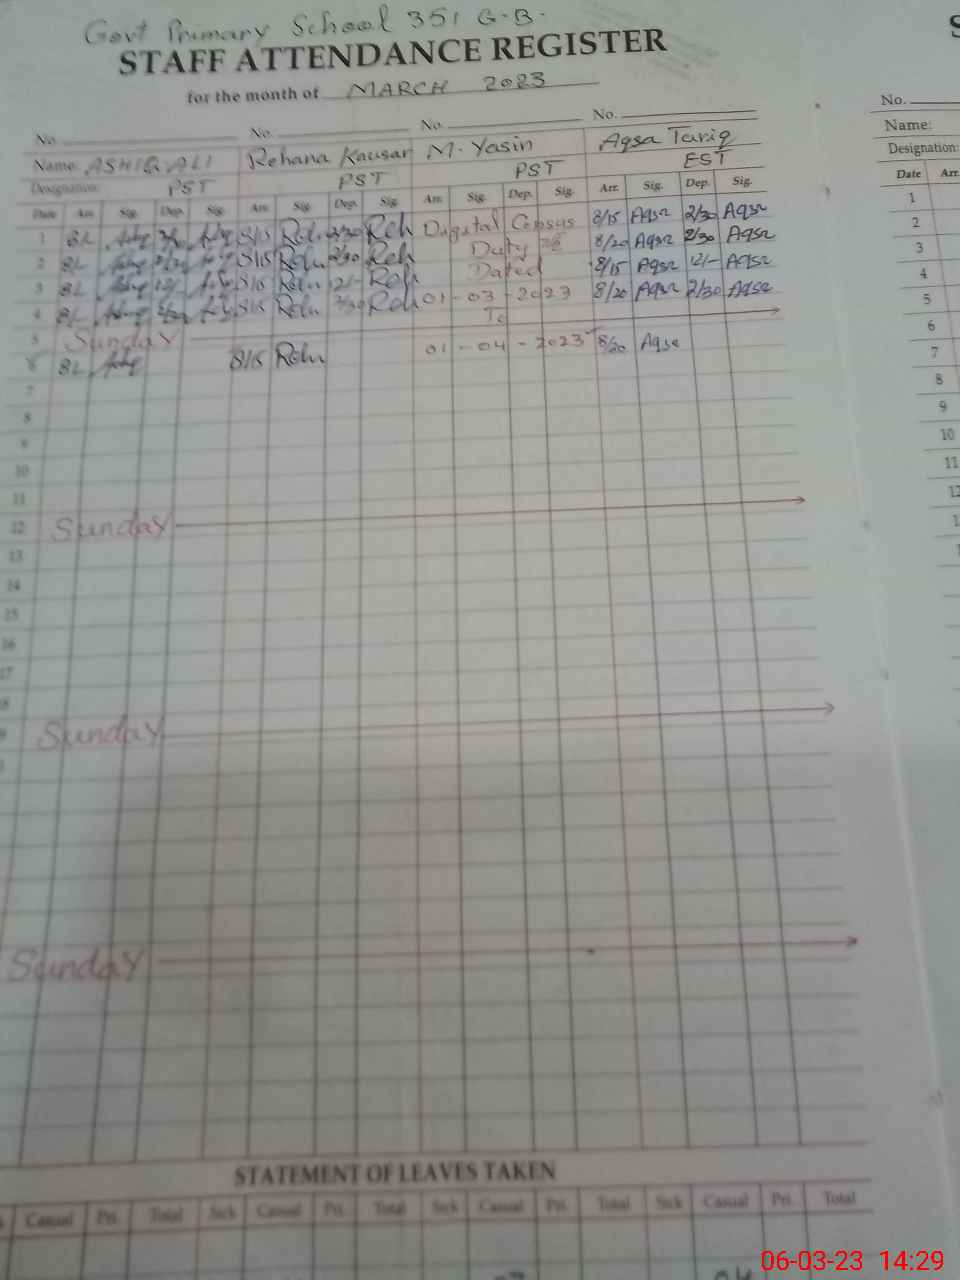 Govt Primary School 351 G.B.
STAFF ATTENDANCE REGISTER
for the month of MARCH 2023
No. No. No. No.
Name: ASHIQ ALI Rehana Kausar M. Yasin Aqsa Tariq
Designation: PST PST PST EST
Date Arr. Sig. Dep. Sig. Arr. Sig. Dep. Sig. Arr. Sig. Dep. Sig. Arr. Sig. Dep. Sig.
1 8/- 8/15 2/30 Reh Digital Census 8/15 Aqsa 2/30 Aqsa
2 8/- 8/15 2/30 Reh Duty 8/20 Aqsa 2/30 Aqsa
3 8/- 8/15 12/- Reh Dated 8/15 Aqsa 12/- Aqsa
4 8/- 8/15 2/30 Reh 01-03-2023 8/20 Aqsa 2/30 Aqsa
5 Sunday To
6 8/- 8/15 01-04-2023 8/20 Aqsa
7
8
9
10
11
12 Sunday
13
14
15
16
17
Sunday
Sunday
STATEMENT OF LEAVES TAKEN
Casual Pri. Total Sick Casual Pri. Total Sick Casual Pri. Total Sick Casual Pri. Total
No.
Name:
Designation:
Date Arr.
1
2
3
4
5
6
7
8
9
10
11
06-03-23 14:29